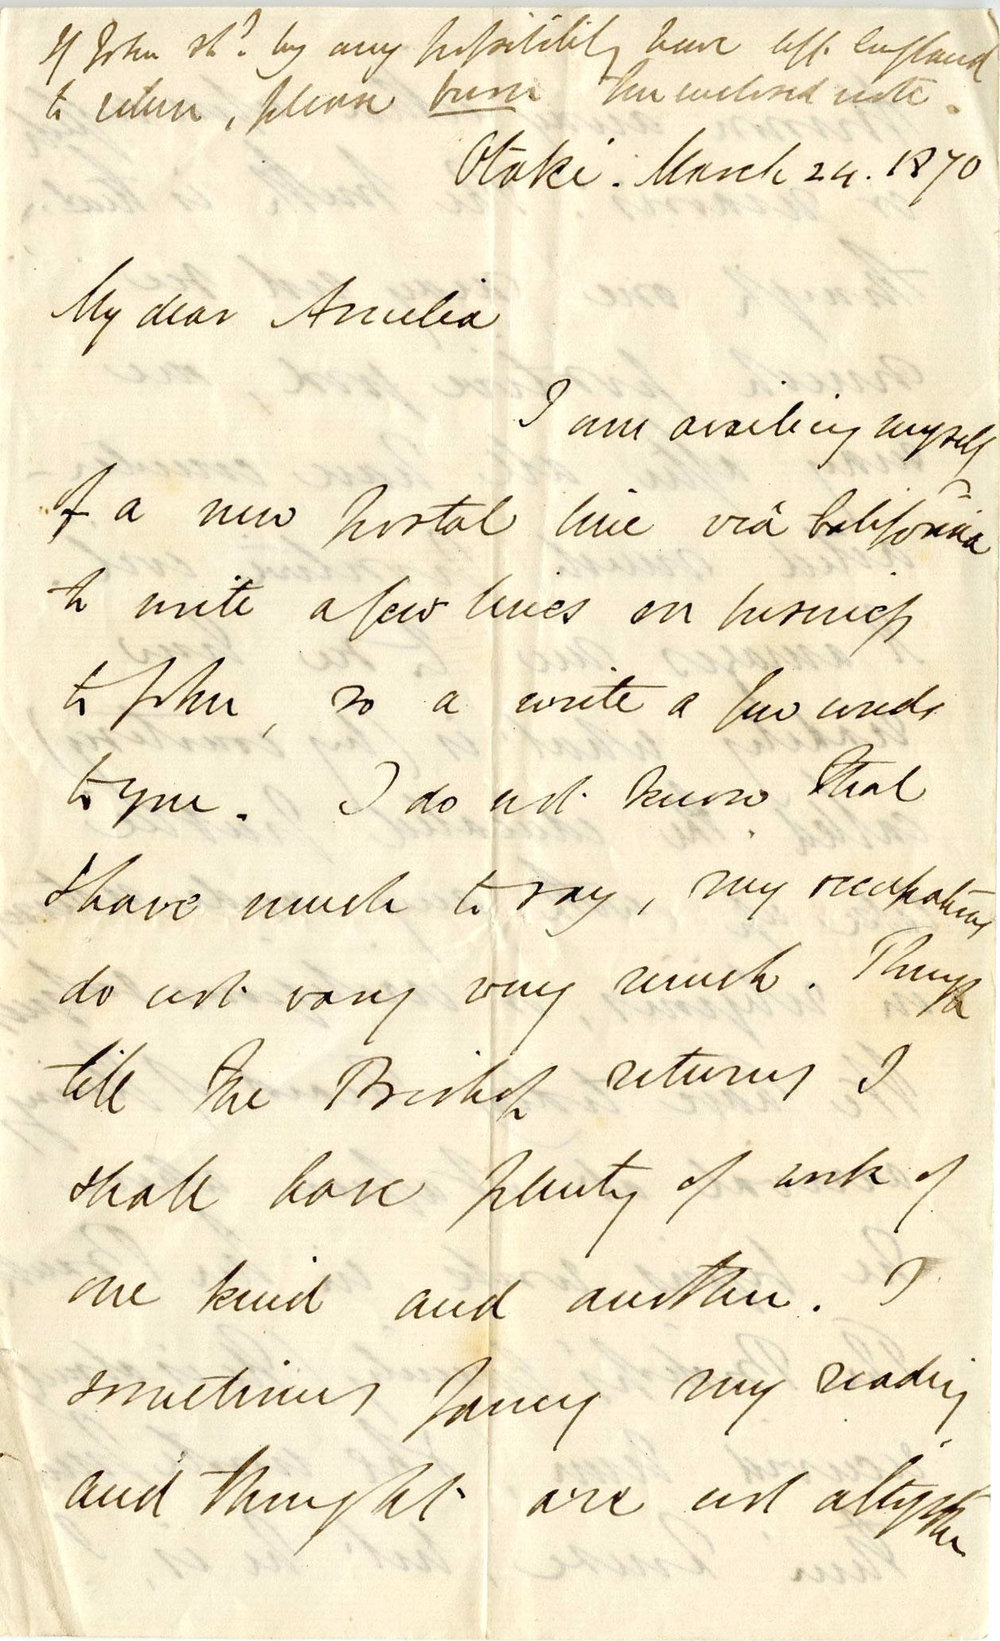 If John shd. by any possibility have left England
to return, please burn the enclosed note.
Otaki. March 24. 1870
My dear Amelia
I am availing myself
of a new postal line viâ California
to write a few lines on business
to John, so a write a few words
to you. I do not know that
I have much to say, my occupations
do not vary very much. Though
till the Bishop returns I
shall have plenty of work of
one kind and another. I
sometimes fancy my reading
and thought are not altogether